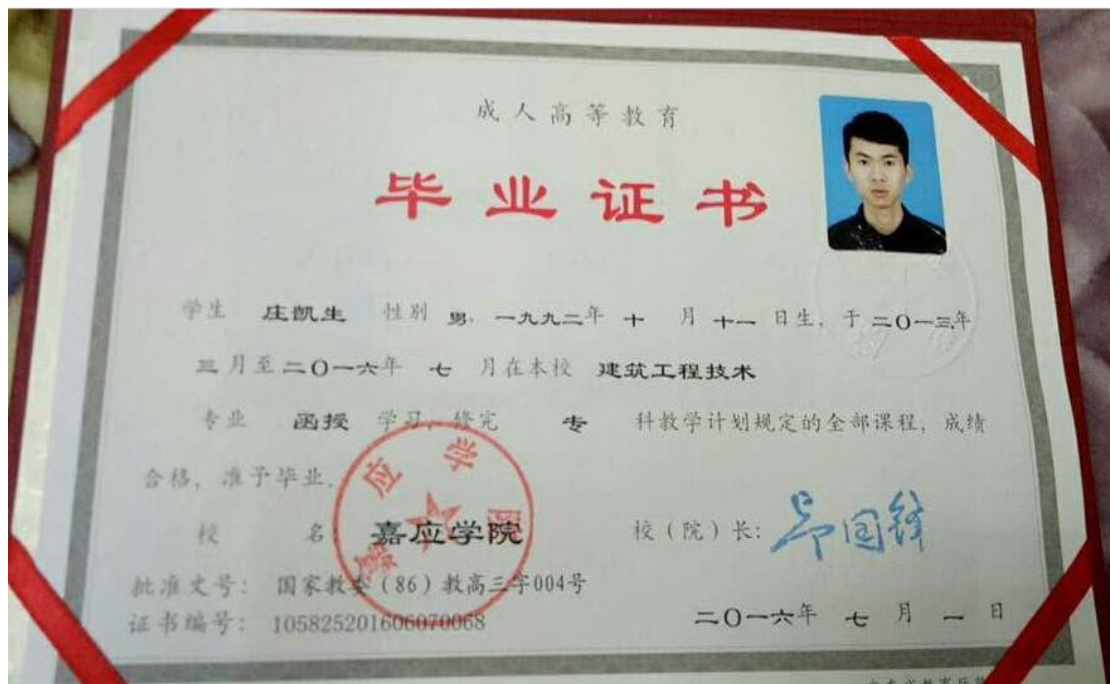 成人高等教育
毕业证书
学生 庄凯生 性别 男, 一九九二年 十 月 十一 日生, 于 二O一三年
三月至二O一六年 七 月在本校 建筑工程技术
专业 函授 学习, 修完 专 科教学计划规定的全部课程, 成绩
合格, 准予毕业.
校 名 嘉应学院 校(院)长:
批准文号: 国家教委(86)教高三字004号
证书编号: 105825201606070068
二O一六年 七 月 一 日
嘉应学院